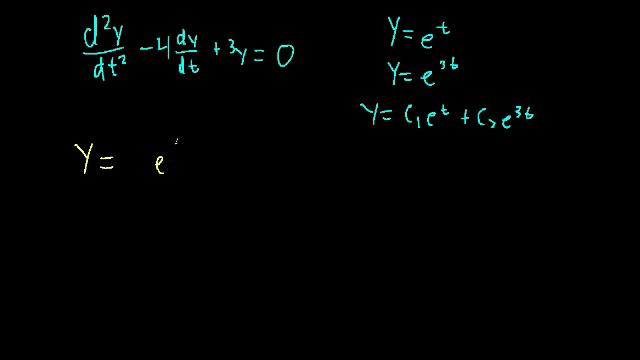 d²y/dt² - 4 dy/dt + 3y = 0
y = e^t
y = e^3t
y = c₁e^t + c₂e^3t
y = e